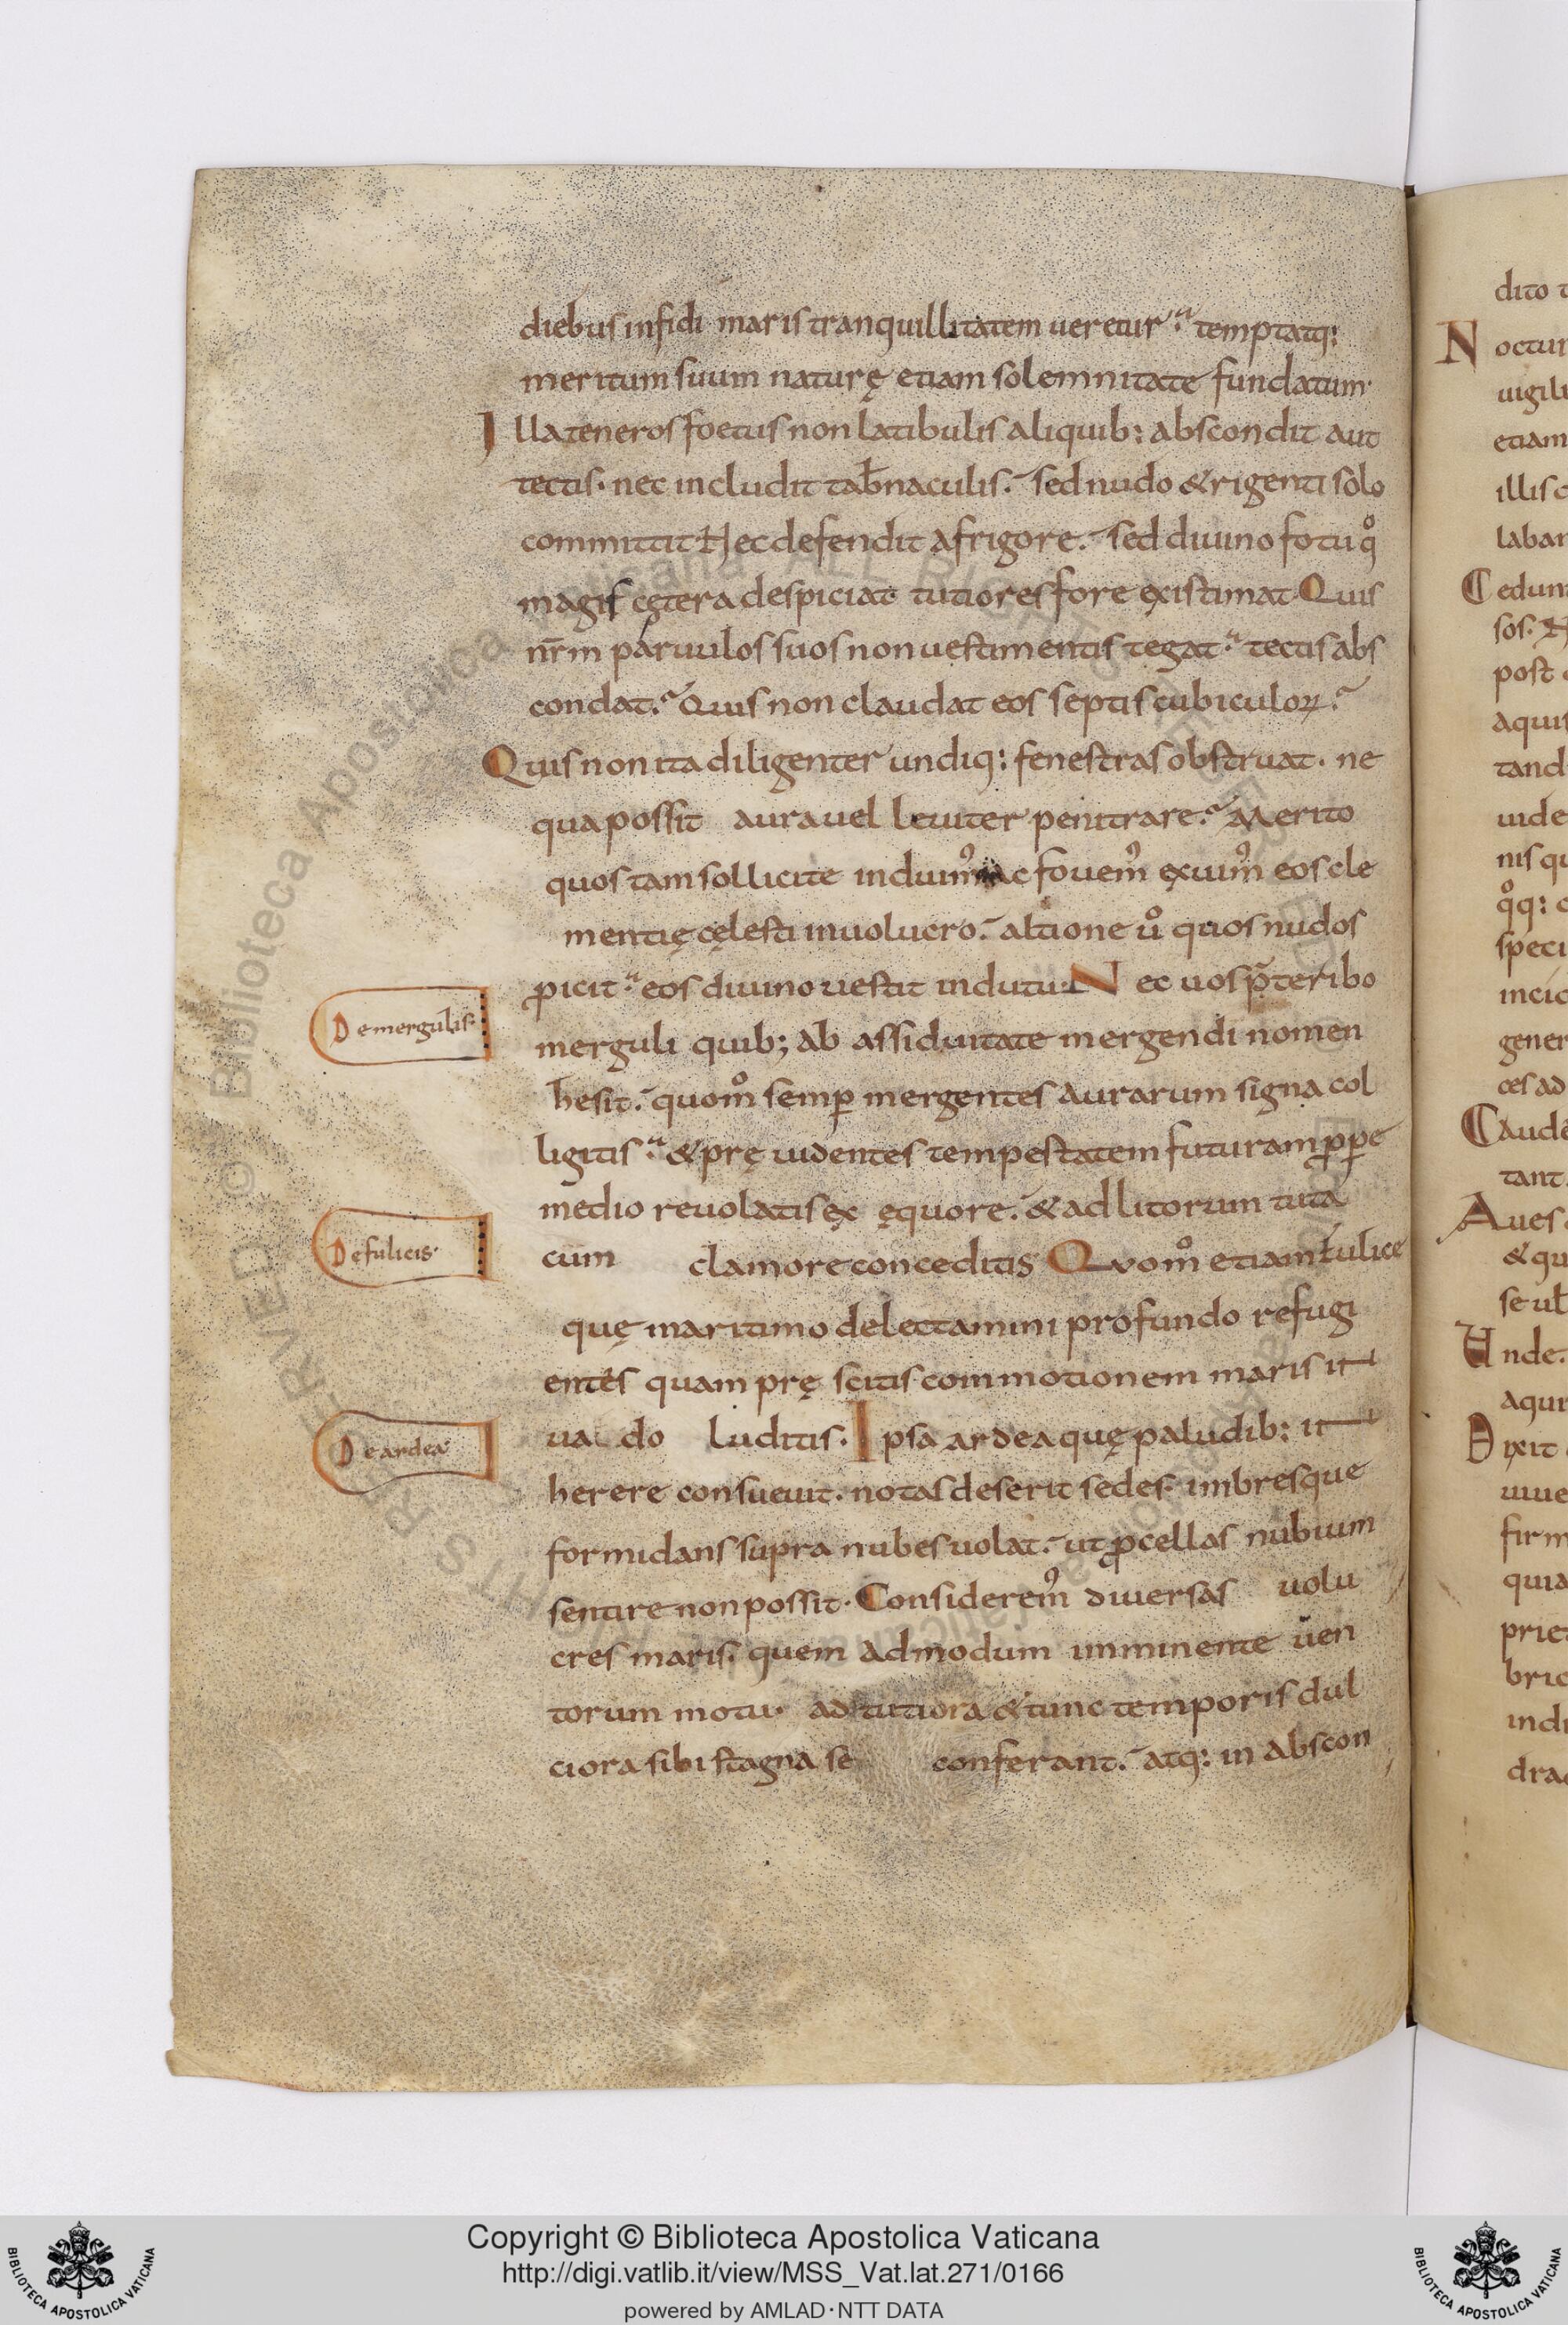 diebus infidi maris tranquillitatem ueretur. temptatq:
meritum suum naturę etiam solemnitate fundatum.
Illa teneros foetus non latibulis aliquib: abscondit aut
tectis. nec includit tab̅naculis. sed nudo & rigenti solo
committit Nec defendit a frigore. sed diuino fotu qͦ
magis cętera despiciat tutiores fore ęxistimat. Quis
nr̅m paruulos suos non uestimentis tegat. tectis abs
condat. Quis non claudat eos septis cubiculoꝝ.
Quis non ita diligenter undiq: fenestras obstruat. ne
qua possit aura uel leuiter penitrare. Merito
quos tam sollicite induim᾿ ac fouem᾿ ęxuim᾿ eos cle
mentię cęlesti inuolucro. altione uͦ quos nudos
ꝓicit. eos diuino uestit indutu. Nec uos p̄teribo
merguli quib; ab assiduitate mergendi nomen
hesit. quomͦ semꝑ mergentes aurarum signa col
ligitis. & prę uidentes tempestatem futuram ꝓꝑe
medio reuolatis ęx ęquore. & ad litorum tuta
cum clamore conceditis. Quomͦ etiam fulice
quę maritimo delectamini profundo refugi
entes quam prę scitis commotionem maris in
ua do luditis. Ipsa ardea quę paludib: in
herere consueuit. notas deserit sedes. imbresque
formidans supra nubes uolat. ut ꝓcellas nubium
sentire non possit. Considerem᾿ diuersas uolu
cres maris. quem admodum imminente uen
torum motu. ad tutiora & tunc temporis dul
ciora sibi stagna se conferant. atq: in abscon
De mergulis.
De fulicis.
De ardea
dito
Noctur
uigili
etiam
illis
labar
Cedun
sos.
post
aquis
tand
uide
nis qu
qͦq:
speci
incid
gener
ces ad
Caude
tant.
Aues
& qu
se ul
Unde.
aqui
Dixit
uiue
firm
quia
priet
bric
indi
drac
© Biblioteca Apostolica Vaticana ALL RIGHTS RESERVED
Copyright © Biblioteca Apostolica Vaticana
http://digi.vatlib.it/view/MSS_Vat.lat.271/0166
powered by AMLAD·NTT DATA
BIBLIOTECA APOSTOLICA VATICANA
BIBLIOTECA APOSTOLICA VATICANA